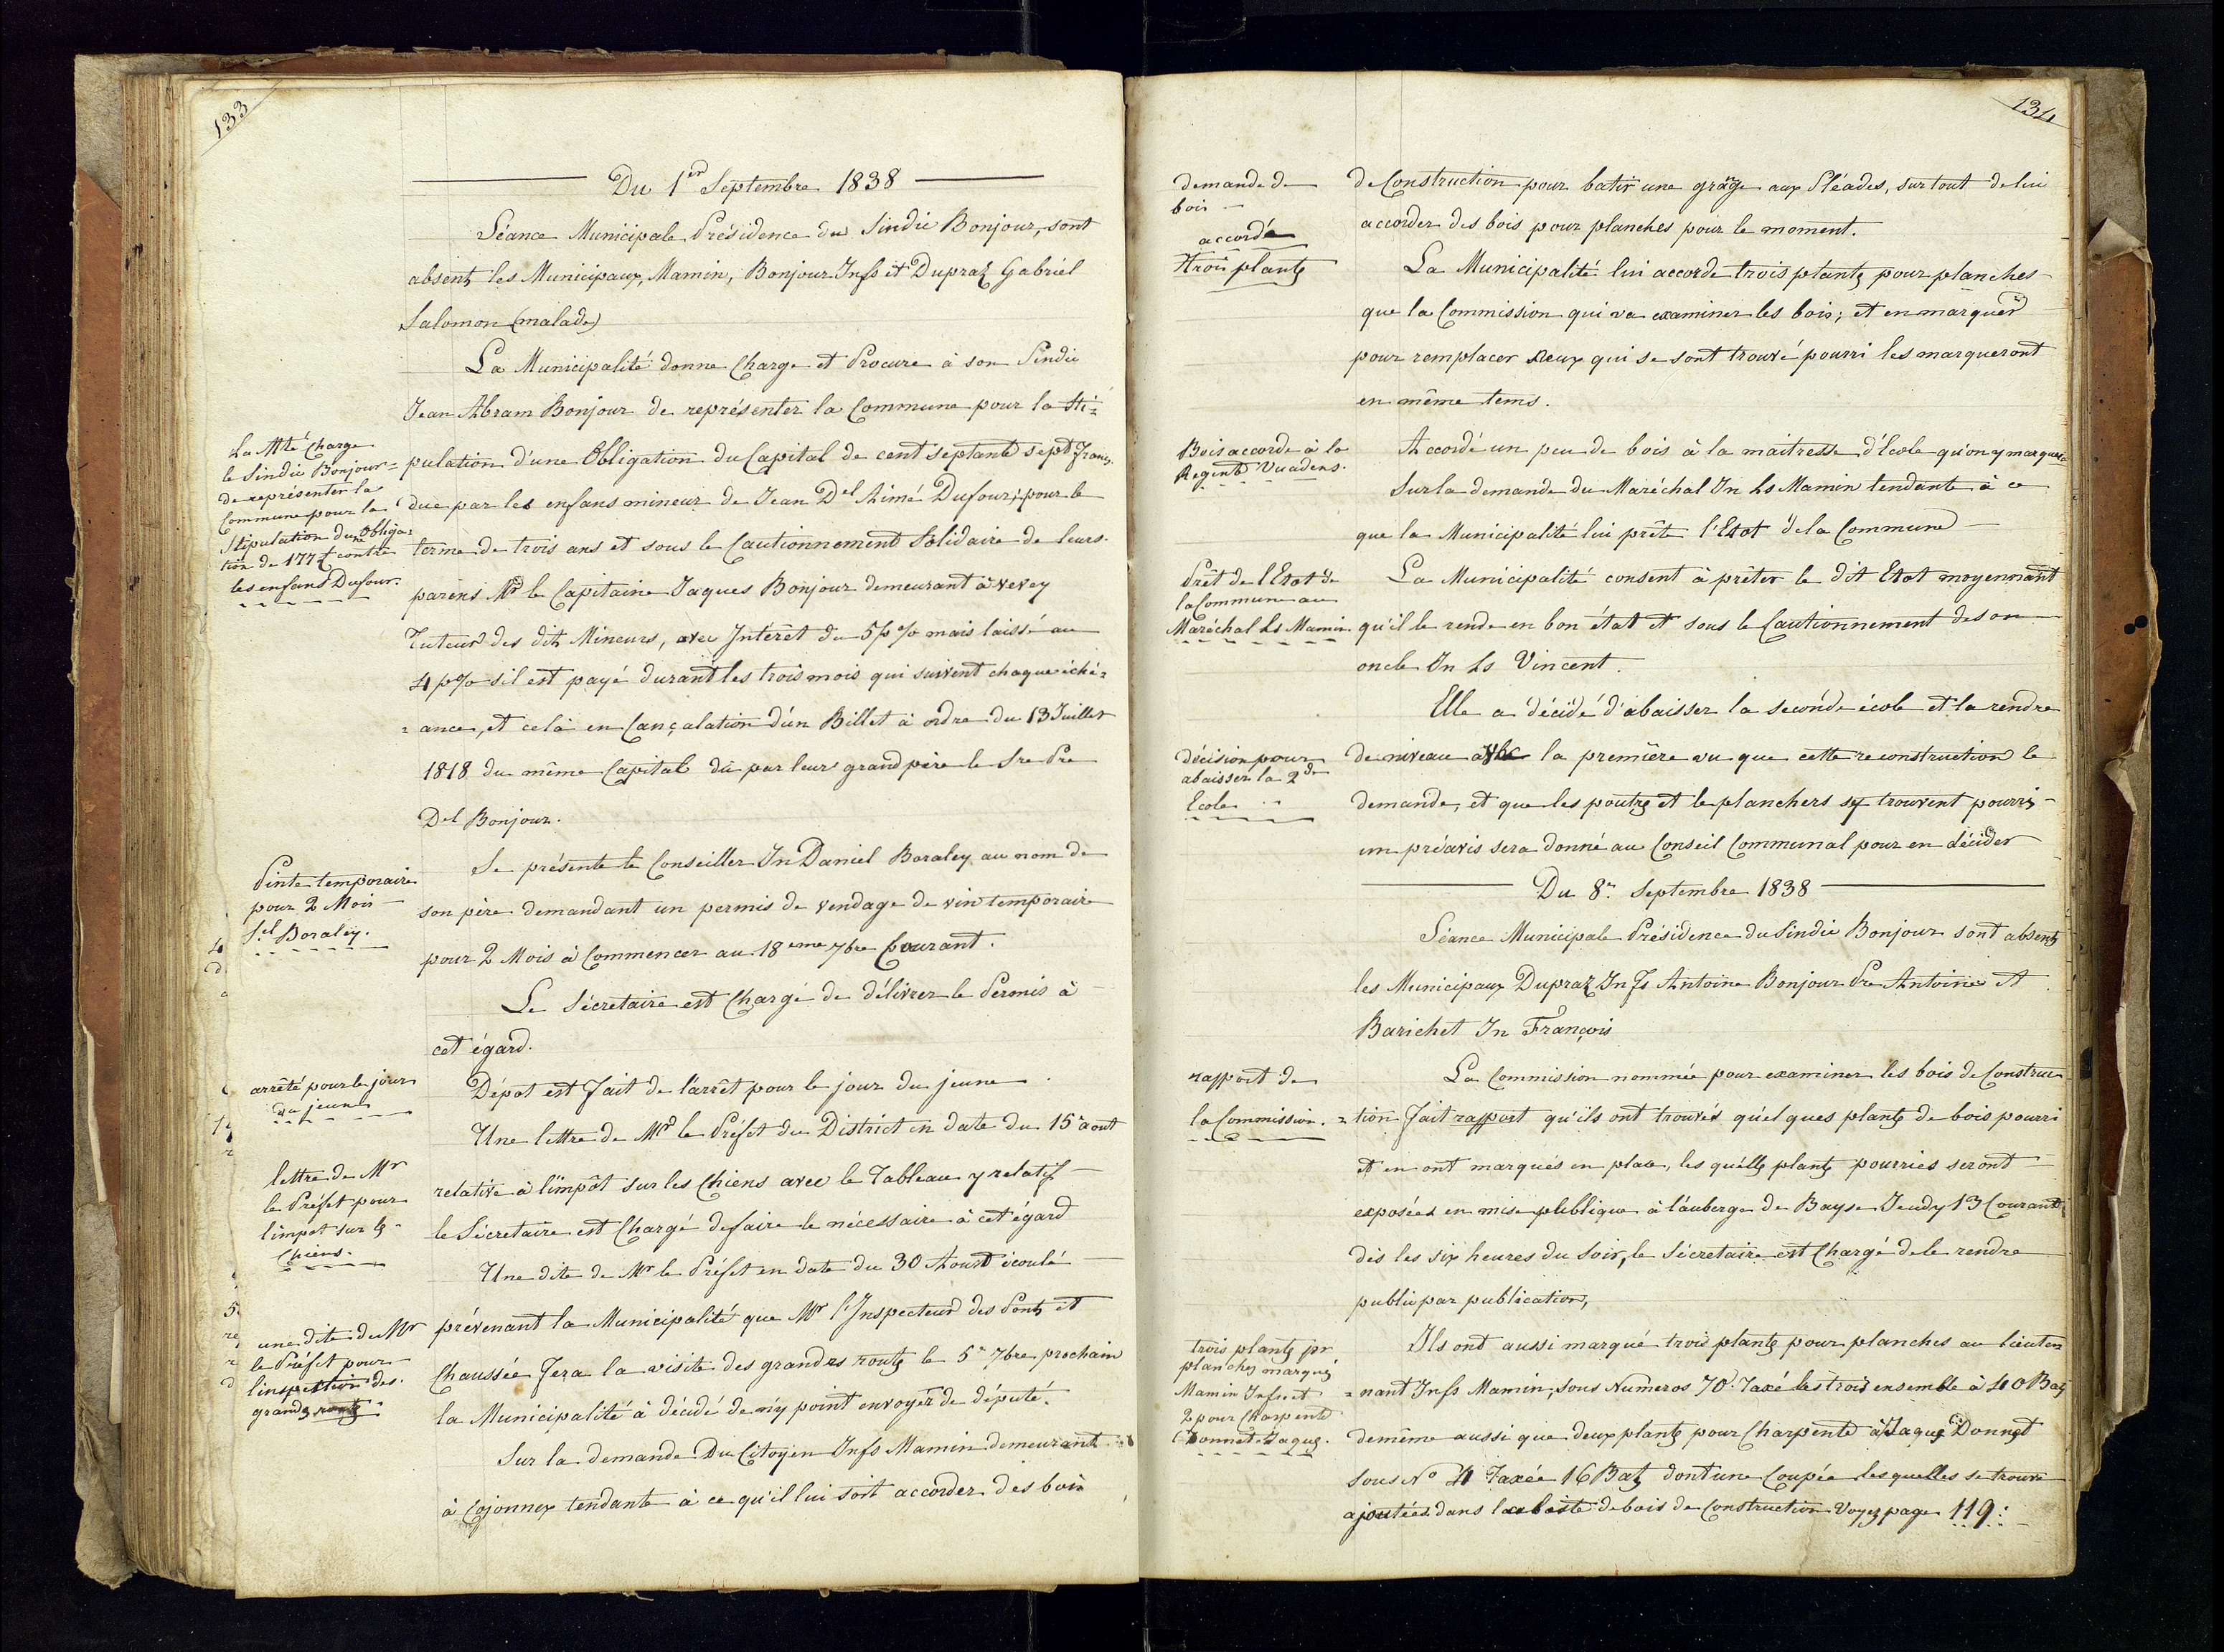 133
Du 1er Septembre 1838
Séance Municipale Présidence du Sindic Bonjour, sont
absents les Municipaux, Mamin, Bonjour Jnfs et Dupraz Gabriel
Salomon (malade)
La Municipalité donne Charge et Procure à son Sindic
Jean Abram Bonjour de représenter la Commune pour la Sti=
La Mté Charge
le Sindic Bonjour=
de représenter la
Commune pour la
Stipulation d'une Obliga=
tion de 177 f contre
les enfans Dufour.
pulation d'une Obligation du Capital de cent septante sept francs.
due par les enfans mineur de Jean Del Aimé Dufour; pour le
terme de trois ans et sous le Cautionnement Solidaire de leurs
parens Mr le Capitaine Jaques Bonjour demeurant à Vevey
Tuteur des dits Mineurs, avec Intérêt du 5 p% mais laissé au
4 p% sil est payé durant les trois mois qui suivent chaque éché=
=ance, et celà en Cançalation d'un Billet à ordre du 13 Juillet
1818 du même Capital dû par leur grand père le Sre Pre
Del Bonjour.
Pinte temporaire
pour 2 Mois
Sel Boraley.
Se présente le Conseiller Jn Daniel Boraley au nom de
son père demandant un permis de vendage de vin temporaire
pour 2 Mois à Commencer au 18eme 7bre Courant.
Le Sécretaire est Chargé de délivrer le Permis à
cet égard.
arrêté pour le jour
du jeune
Dépot est fait de l'arrêt pour le jour du jeune
lettre de Mr
le Préfet pour
l'impot sur les
Chiens.
Une lettre de Mr le Préfet du District en date du 15 aout
relative à l'impôt sur les Chiens avec le Tableau y relatif
le Sécretaire est Chargé de faire le nécessaire à cet égard
une dite de Mr
le Préfet pour
l'inspection des
grands routes
Une dite de Mr le Préfet en date du 30 Aoust écoulé
prévenant la Municipalité que Mr l'Inspecteur des Ponts et
Chaussée fera la visite des grandes routes le 5e 7bre prochain
la Municipalité à décidé de n'y point envoyér de députe.
Sur la demande Du Citoyen Jnfs Mamin demeurant
à Cojonnex tendante à ce qu'il lui soit accorder des bois
134
demande de
bois
accordé
trois plants
de Construction pour batir une grange aux Pléades, sur tout de lui
accorder des bois pour planches pour le moment.
La Municipalité lui accorde trois plants pour planches
que la Commission qui va examiner les bois; et en marquer
pour remplacer ceux qui se sont trouvé pourri les marqueront
en même tems.
Bois accorde à la
Regente Vuadens.
Accordé un peu de bois à la maitresse d'école qu'on y marquera
Sur la demande du Maréchal Jn Ls Mamin tendante à ce
que la Municipalité lui prête l'Etat de la Commune
Prêt de l'Etat de
la Commune au
Maréchal Ls Mamin.
La Municipalité consent à prêter le dit Etat moyennant
qu'il le rende en bon état et sous le Cautionnement de son
oncle Jn Ls Vincent.
décision pour
abaisser la 2de
Ecole
Elle a décidé d'abaisser la seconde école et la rendre
de niveau avec la première vu que cette reconstruction le
demande, et que les poutres et le planchers sy trouvent pourris
un préavis sera donné au Conseil Communal pour en décider
Du 8e. Septembre 1838
Séance Municipale Présidence du Sindic Bonjour sont absents
les Municipaux Dupraz Jn Fs Antoine Bonjour Pre Antoine et
Barichet Jn François
rapport de
la Commission.
La Commission nommée pour examiner les bois de Construc
=tion fait rapport qu'ils ont trouvés quelques plants de bois pourri
et en ont marqués en place, les quelles plants pourries seront
exposées en mise publique à l'auberge de Bayse Jeudy 13 Courant
dès les six heures du Soir, le Sécretaire est Chargé de le rendre
public par publication,
trois plants pr
planches marqué
Mamin Jnfs et
2 pour Charpente
Donnet Jaques.
Ils ont aussi marqué trois plants pour planches au lieuten
=nant Jnfs Mamin, sous Numeros 70. Taxé les trois ensemble à 40 Batz
de même aussi que deux plants pour Charpente à Jaques Donnet
Sous No 4 Taxée 16 Batz dont une Coupée lesquelles se trouve
ajoutées dans la liste de bois de Construction Voyez page 119: